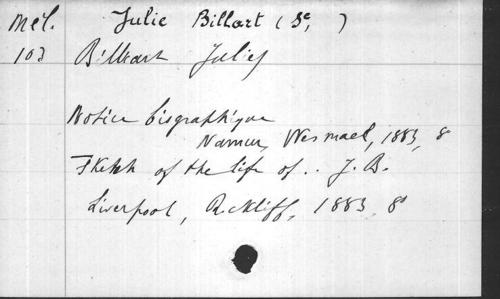 Mel. Julie Billart (Se, )
103 Billiart Julie
Notice biographique
Namur, Wesmael, 1883, 8°
Sketch of the life of.. J. B.
Liverpool, Rockliff, 1883 8°